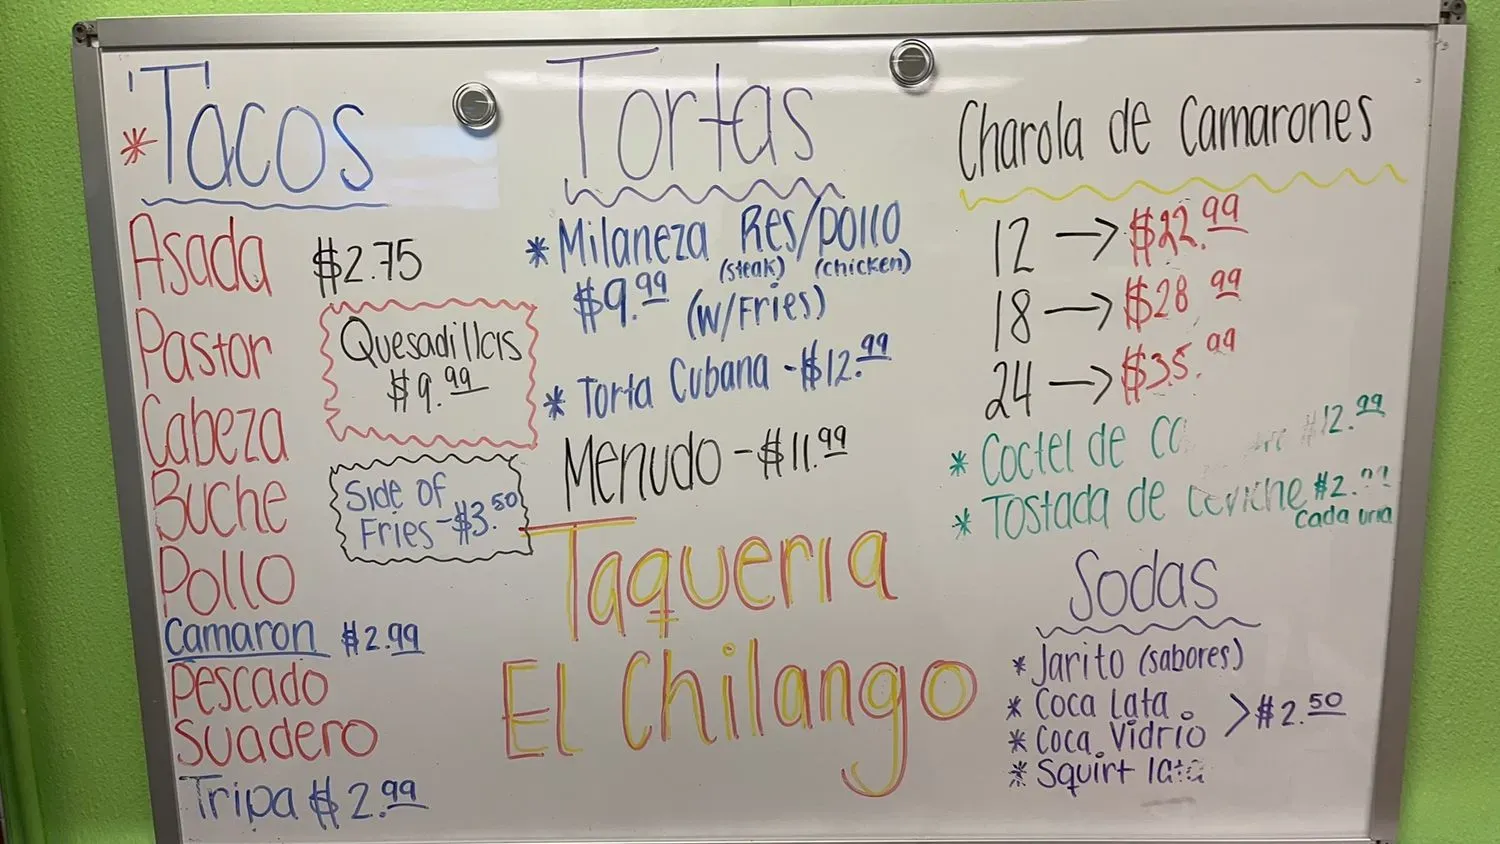 Tacos
Asada $2.75
Pastor
Cabeza
Buche
Pollo
Camaron $2.99
Pescado
Suadero
Tripa $2.99
Quesadillas
$9.99
Side of
Fries-$3.50
Tortas
* Milaneza Res/Pollo
(steak) (chicken)
$9.99 (w/Fries)
* Torta Cubana - $12.99
Menudo - $11.99
Taqueria
El Chilango
Charola de Camarones
12 → $22.99
18 → $28.99
24 → $35.99
* Coctel de $12.99
* Tostada de Ceviche $2.
cada una
Sodas
* Jarito (sabores)
* Coca Lata
* Coca Vidrio > $2.50
* Squirt lata